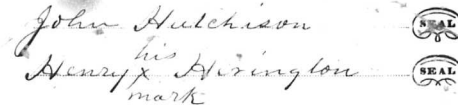 John Hutchison SEAL
his
Henry x Hirington SEAL
mark